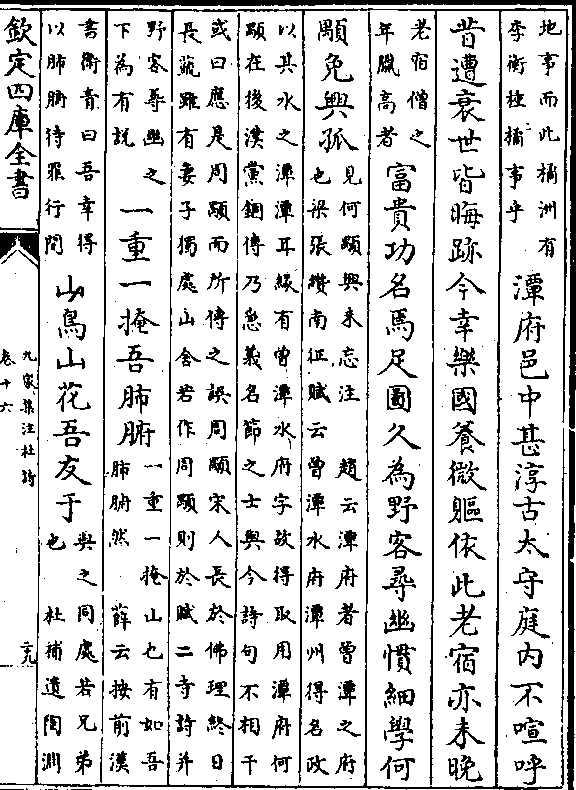 地事而此橘洲有
李衡種橘事乎
潭府邑中甚淳古太守庭内不喧呼
昔遭衰世皆晦跡今幸樂國養微軀依此老宿亦未晚
老宿僧之
年臘高者
富貴功名焉足圖久為野客尋幽慣細學何
顒免興孤
見何顒興未忘注　趙云潭府者曾潭之府
也梁張纘南征賦云曾潭水府潭州得名政
以其水之潭潭耳緣有曾潭水府字故得取用潭府何
顒在後漢黨錮傳乃急義名節之士與今詩句不相干
或曰應是周顒而所傳之誤周顒宋人長於佛理終日
長蔬雖有妻子獨處山舍若作周顒則於賦二寺詩并
野客尋幽之
下為有說
一重一掩吾肺腑
一重一掩山也有如吾
肺腑然　薛云按前漢
書衛青曰吾幸得
以肺腑待罪行間
山鳥山花吾友于
與之同處若兄弟
也　杜補遺陶淵
欽定四庫全書
九家集注杜詩
卷十六
二十九